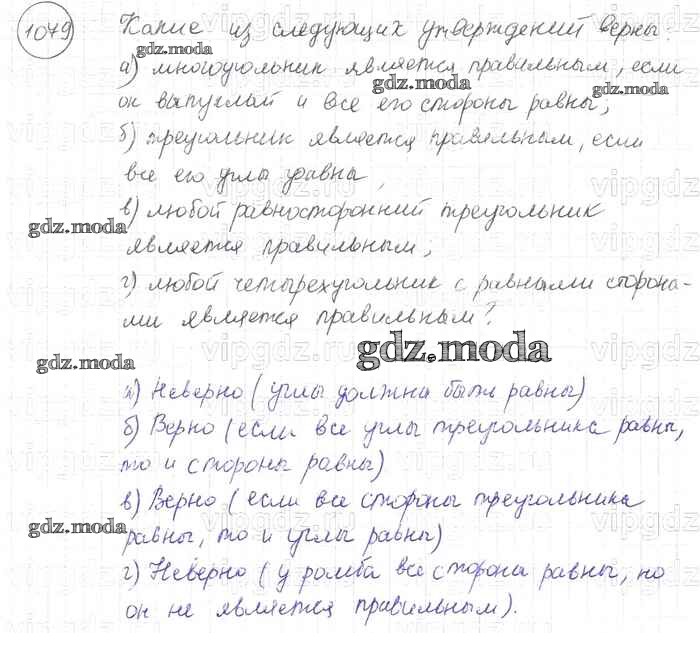 1079 Какие из следующих утверждений верны:
gdz.moda
а) многоугольник является правильным, если
gdz.moda
он выпуклый и все его стороны равны;
gdz.moda
б) треугольник является правильным, если
все его углы равны,
в) любой равносторонний треугольник
gdz.moda
является правильным;
г) любой четырехугольник с равными сторона-
ми является правильным?
gdz.moda
gdz.moda
а) Неверно (углы должны быть равны)
б) Верно (если все углы треугольника равны,
то и стороны равны)
в) Верно (если все стороны треугольника
gdz.moda
gdz.moda
равны, то и углы равны)
г) Неверно (у ромба все стороны равны, но
он не является правильным).
gdz.moda